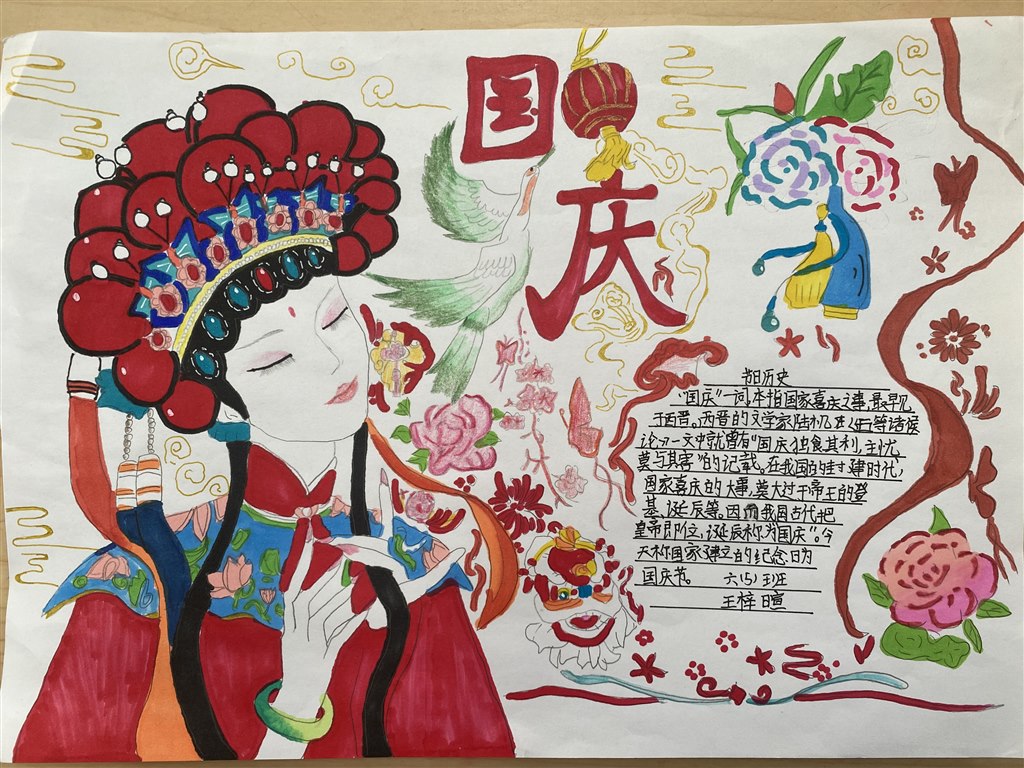 国
庆
节日历史
"国庆"一词,本指国家喜庆之事,最早见
于西晋。西晋的文学家陆机在《五等诸侯
论》一文中就曾有"国庆独飨其利,主忧
莫与其害"的记载。在我国的封建时代,
国家喜庆的大事,莫大过于帝王的登
基、诞辰等。因而我国古代把
皇帝即位、诞辰称为"国庆"。今
天称国家建立的纪念日为
国庆节。 六(5)班
王梓暄